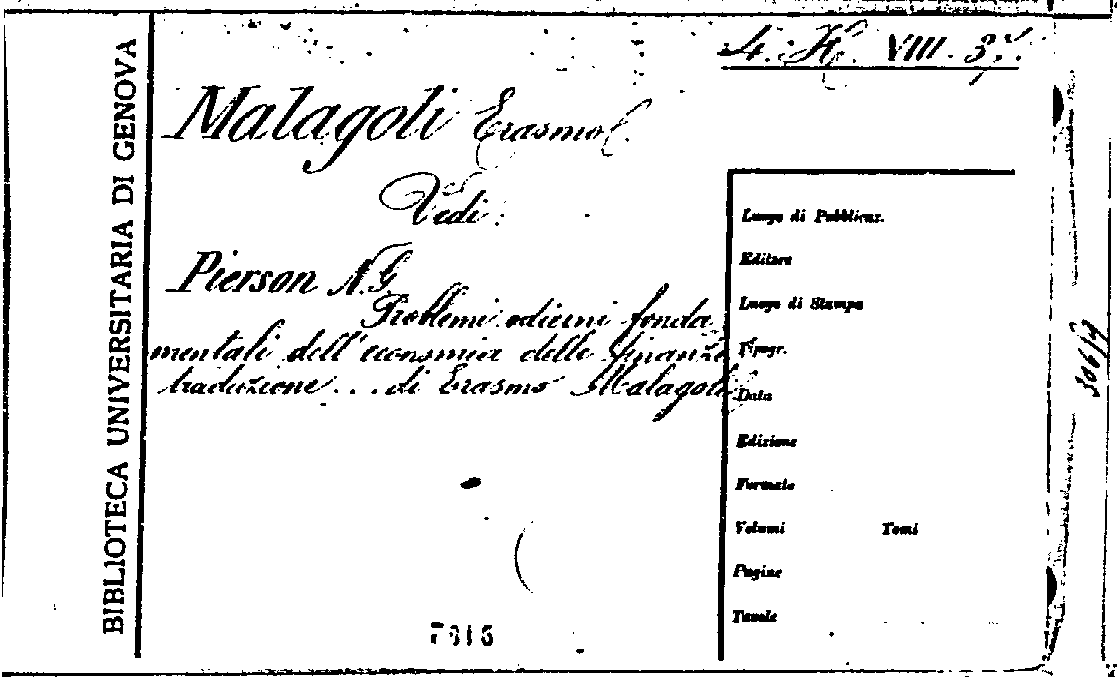 BIBLIOTECA UNIVERSITARIA DI GENOVA
4. H. VIII. 37.
Malagoli Erasmo
Vedi:
Pierson N. G.
Problemi odierni fonda
mentali dell'economia delle finanze
traduzione ... di Erasmo Malagoli
Luogo di Pubblicaz.
Editore
Luogo di Stampa
Tipogr.
Data
Edizione
Formato
Volumi Tomi
Pagine
Tavole